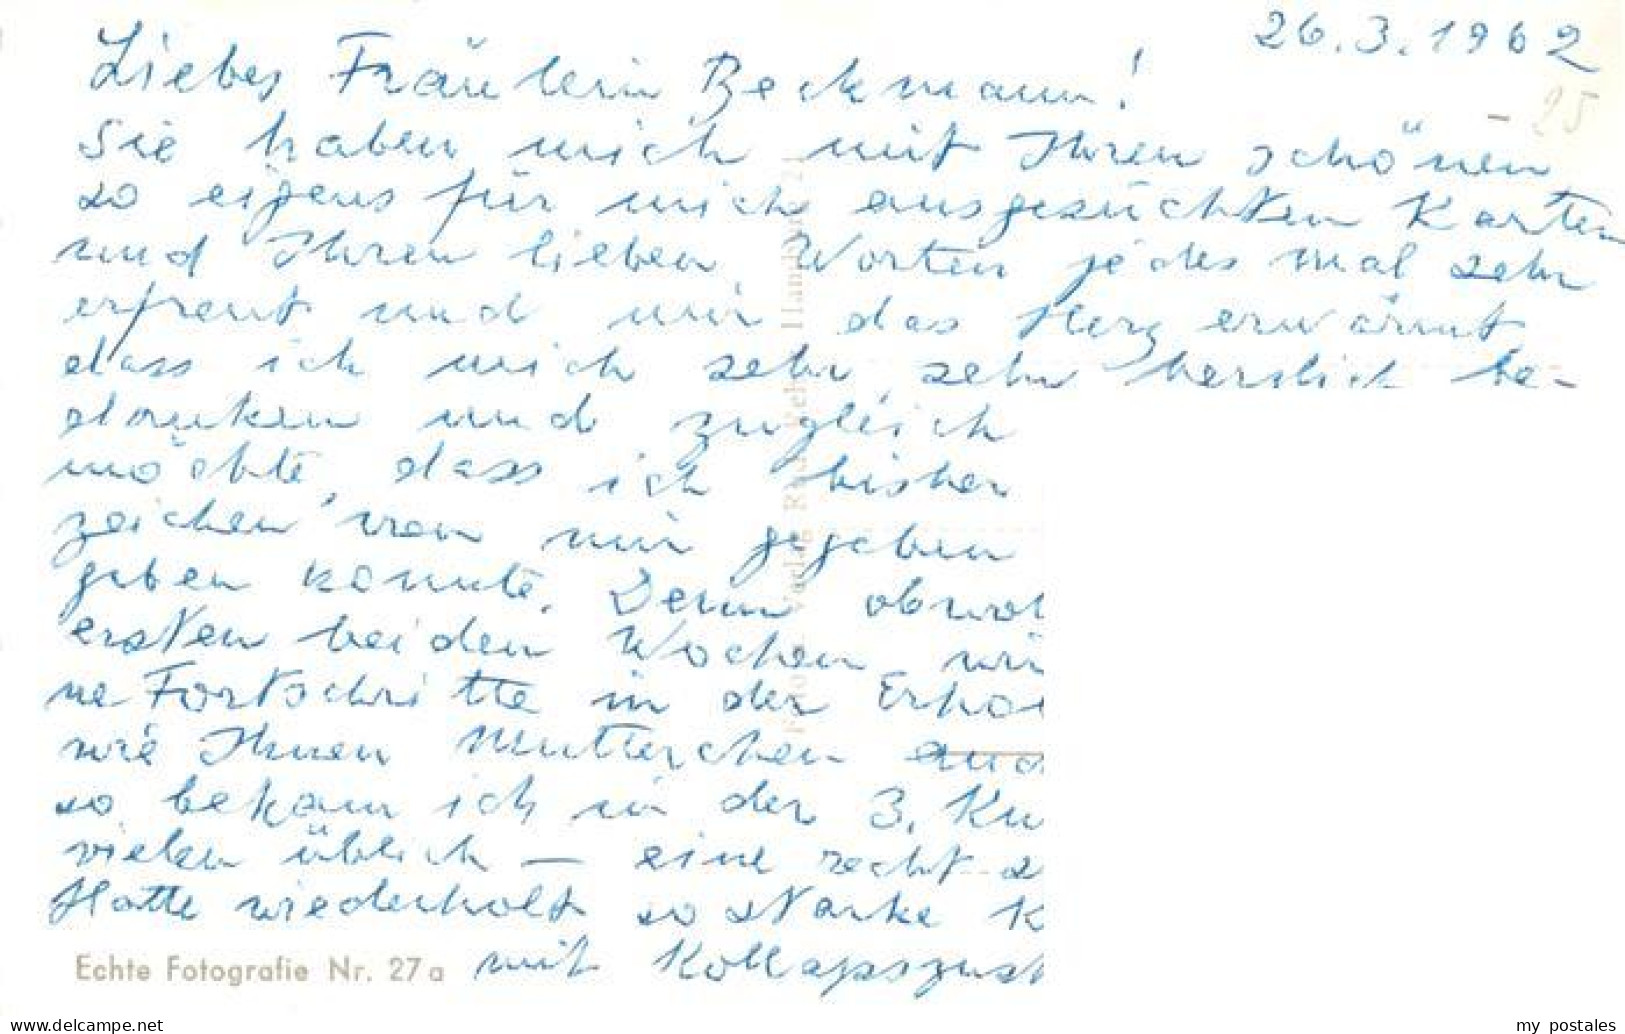 26.3.1962
Liebes Fräulein Beckmann!
- 25
Sie haben mich mit Ihren schönen
so eigens für mich ausgesuchten Karten
und Ihren lieben Worten jedes mal sehr
erfreut und mir das Herz erwärmt,
dass ich mich sehr, sehr herzlich be-
danken und zugleich
möchte, dass ich bisher
zeichen von mir gegeben
geben konnte. Denn obwoh
ersten beiden Wochen
ne Fortschritte in der Erho
wie Ihnen Mutterchen
so bekam ich in der 3. Ku
vielen üblich – eine recht s
Hatte wiederholt so starke K
mit Kollapszust
Echte Fotografie Nr. 27a
delcampe.net
my_postales